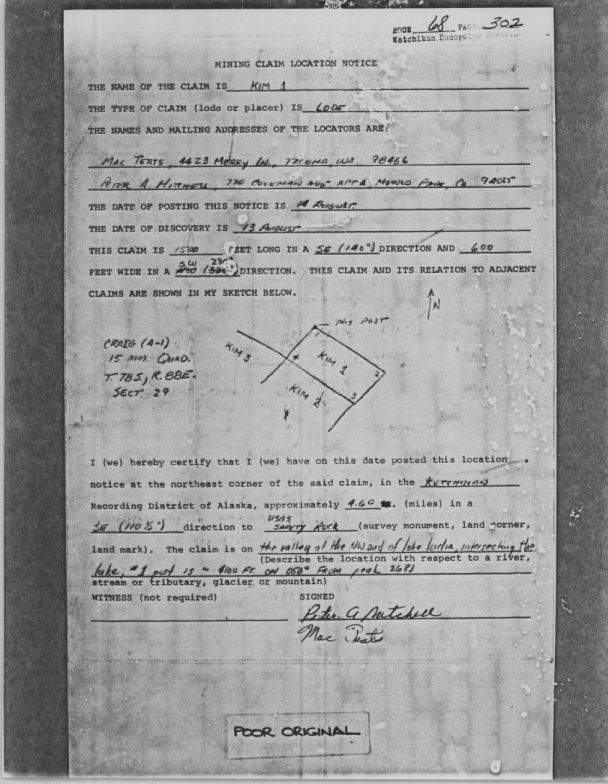 BOOK 68 PAGE 302
Ketchikan Recording District
MINING CLAIM LOCATION NOTICE
THE NAME OF THE CLAIM IS KIM 1
THE TYPE OF CLAIM (lode or placer) IS LODE
THE NAMES AND MAILING ADDRESSES OF THE LOCATORS ARE:
MAC TEATS, 4423 MERRY LN., TACOMA, WA. 98466
PETER A. MITCHELL, 770 COLEMAN AVE APT A MENLO PARK, CA 94025
THE DATE OF POSTING THIS NOTICE IS 14 AUGUST
THE DATE OF DISCOVERY IS 13 AUGUST
THIS CLAIM IS 1500 FEET LONG IN A SE (140°) DIRECTION AND 600
FEET WIDE IN A SW 230° DIRECTION. THIS CLAIM AND ITS RELATION TO ADJACENT
CLAIMS ARE SHOWN IN MY SKETCH BELOW.
N
THIS POST
CRAIG (A-1)
15 MIN. QUAD.
T. 78S, R. 88E.
SECT 29
KIM 3
1
KIM 1
4
2
KIM 2
3
I (we) hereby certify that I (we) have on this date posted this location
notice at the northeast corner of the said claim, in the KETCHIKAN
Recording District of Alaska, approximately 4.60 (miles) in a
SE (110½°) direction to USGS SAFETY ROCK (survey monument, land corner,
land mark). The claim is on the valley at the NW end of lake , intersecting the
(Describe the location with respect to a river,
lake, #1 post is ~ 4100 FT. ON 050° FROM peak 2683
stream or tributary, glacier or mountain)
WITNESS (not required) SIGNED
Peter A Mitchell
Mac Teats
POOR ORIGINAL